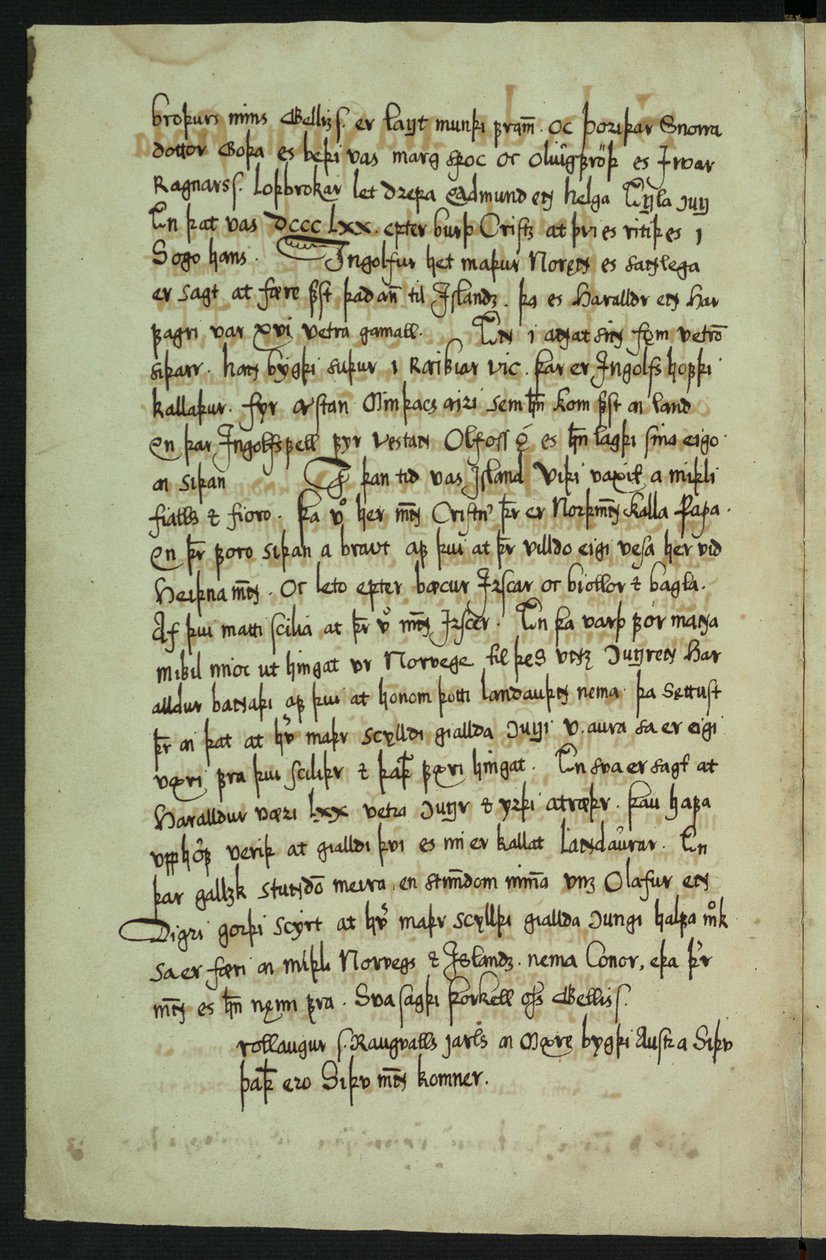 broþurs mins Gellis s. er langt munþi fram̄. oc Þoriþar Snorra
dottor Goþa es bęþi vas marg spoc oc olúgfróþ es Jvar
Ragnars s. Loþbrokar let drepa Eadmund eɴ helga Eɴgla kung
En þat vas DCCC LXX. epter burþ Cristz at þvi es ritiþ es i
Sogo hans. Ingolfur het maþur Noręɴ es saɴlega
er sagt at fœre fyst þaðan̄ til Islandz. þa es Haralldr eɴ Har
fagri var xvi vetra gamall. En i aɴat siɴ fọm vetrō
siþarr. haɴ bygþi suþur i Raikiar vic. þar er Ingolfs hofþi
kallaþur. fyr austan Minþacs airi sem hn̄ kom fyst a land
en þar Ingolfs fell fyr vestan Olfoss á es hn̄ lagþi sina eigo
a siþan I þan tid vas Island viþi vaxit a miþli
fialls & fioro. þa v͛o her mɴ̄ Cristn͛ þr̄ er Norþmɴ̄ kalla Papa.
en þr̄ foro siþan a braut af þvi at þr̄ villdo eigi vesa her vid
Heiþna mɴ̄. Oc leto epter bœcur Irscar oc biollor & bagla.
Af þvi matti scilia at þr̄ v͛o mɴ̄ Irscer. En þa varþ for maɴa
mikil mioc ut hingat ur Norvege til þes unz konungreɴ Har
alldur baɴaþi af þvi at honom þotti landauþn nema þa sęttust
þr̄ a þat at hv͛ maþr scylldi giallda kungi v. aura sa er eigi
væri fra þvi sciliþr & þaþ̄ fœri hingat. En sva er sagt at
Haralldur væri LXX vetra kungr & yrþi atræþr. þau hafa
upphǫf veriþ at gialldi þvi es nu er kallat landaúrar. En
þar gallzk stundō meira en stundom miɴa unz Olafur eɴ
Digri gorþi scyrt at hv͛ maþr scyllþi giallda kungi halfa m͛k
sa er fœri a miþli Norvegs & Islandz. nema Conor, eþa þ͛r
mɴ̄ es hn̄ næmi fra. Sva sagþi þorkell oss Gellis s.
rollaugur s. Raugvalls jarls a Mære bygþi Austr a Siþu
þaþ̄ ero Siþu mɴ̄ komner.